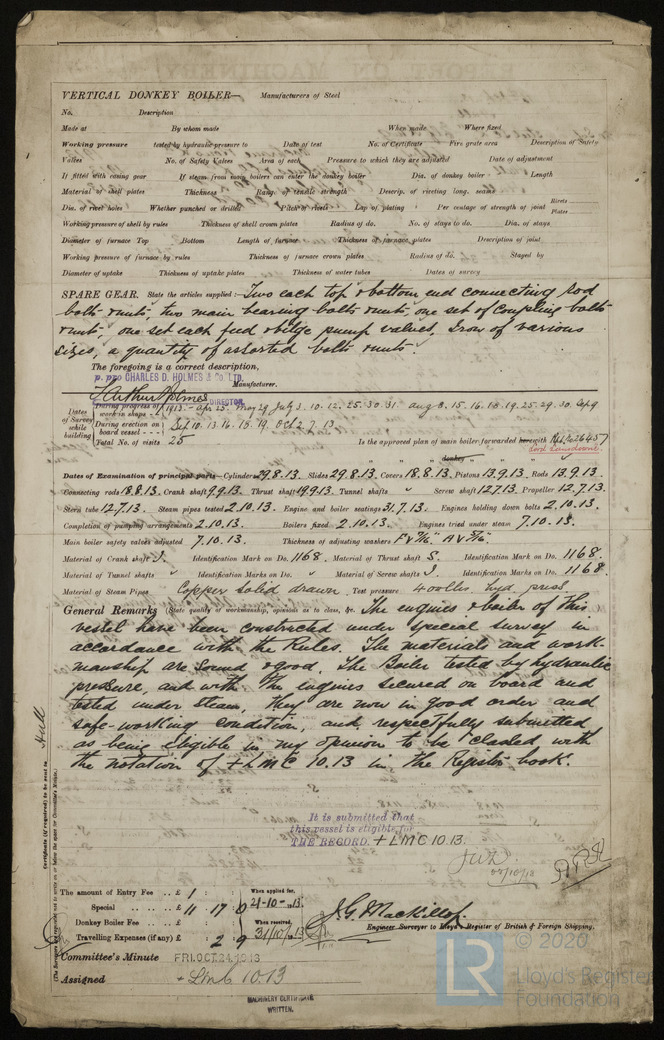 VERTICAL DONKEY BOILER— Manufacturers of Steel
No. Description
Made at By whom made When made Where fixed
Working pressure tested by hydraulic pressure to Date of test No. of Certificate Fire grate area Description of Safety
Valves No. of Safety Valves Area of each Pressure to which they are adjusted Date of adjustment
If fitted with easing gear If steam from main boilers can enter the donkey boiler Dia. of donkey boiler Length
Material of shell plates Thickness Range of tensile strength Descrip. of riveting long. seams
Dia. of rivet holes Whether punched or drilled Pitch of rivets Lap of plating Per centage of strength of joint Rivets Plates
Working pressure of shell by rules Thickness of shell crown plates Radius of do. No. of stays to do. Dia. of stays
Diameter of furnace Top Bottom Length of furnace Thickness of furnace plates Description of joint
Working pressure of furnace by rules Thickness of furnace crown plates Radius of do. Stayed by
Diameter of uptake Thickness of uptake plates Thickness of water tubes Dates of survey
SPARE GEAR. State the articles supplied:— Two each top & bottom end connecting rod
bolts & nuts, two main bearing bolts & nuts, one set of coupling bolts
& nuts, one set each feed & bilge pump valves, Iron of various
sizes, a quantity of assorted bolts & nuts.
The foregoing is a correct description,
p. pro CHARLES D. HOLMES & Co. LTD.
Manufacturer.
Arthur Holmes
DIRECTOR.
Dates of Survey while building
During progress of work in shops - - 1913:- Apr 25. May 29. July 3. 10. 12. 25. 30. 31. Aug 8. 15. 16. 18. 19. 25. 29. 30. Sep 9
During erection on board vessel - - - Sep 10. 13. 16. 18. 19. Oct 2. 7. 13.
Total No. of visits 25
Is the approved plan of main boiler forwarded herewith
Lord Lansdowne.
" " " donkey " " "
Dates of Examination of principal parts—Cylinders 29.8.13. Slides 29.8.13. Covers 18.8.13. Pistons 13.9.13. Rods 13.9.13.
Connecting rods 18.8.13. Crank shaft 9.9.13. Thrust shaft 19.9.13. Tunnel shafts " Screw shaft 12.7.13. Propeller 12.7.13.
Stern tube 12.7.13. Steam pipes tested 2.10.13. Engine and boiler seatings 31.7.13. Engines holding down bolts 2.10.13.
Completion of pumping arrangements 2.10.13. Boilers fixed 2.10.13. Engines tried under steam 7.10.13.
Main boiler safety valves adjusted 7.10.13. Thickness of adjusting washers
Material of Crank shaft I. Identification Mark on Do. 1168. Material of Thrust shaft S. Identification Mark on Do. 1168.
Material of Tunnel shafts " Identification Marks on Do. " Material of Screw shafts I. Identification Marks on Do. 1168.
Material of Steam Pipes Copper solid drawn. Test pressure 400 lbs hyd press.
General Remarks (State quality of workmanship, opinions as to class, &c. The engines & boiler of this
vessel have been constructed under special survey in
accordance with the Rules. The materials and work-
manship are sound & good. The Boiler tested by hydraulic
pressure, and with the engines secured on board and
tested under steam, they are now in good order and
safe working condition, and respectfully submitted
as being eligible in my opinion to be classed with
the notation of + LMC 10.13 in the Register book.
It is submitted that
this vessel is eligible for
THE RECORD. + LMC 10.13.
Certificate (if required) to be sent to Hull
The amount of Entry Fee .. £ 1 : :
Special .. .. £ 11 : 17 : 0
Donkey Boiler Fee .. .. £ : :
Travelling Expenses (if any) £ : 2 : 9
When applied for,
21-10-1913.
When received,
31/10/1913
J. G. Mackillop.
Engineer Surveyor to Lloyd's Register of British & Foreign Shipping.
Committee's Minute FRI. OCT. 24. 1913
Assigned + LMC 10.13
MACHINERY CERTIFICATE
WRITTEN.
© 2020
Lloyd's Register
Foundation
LR